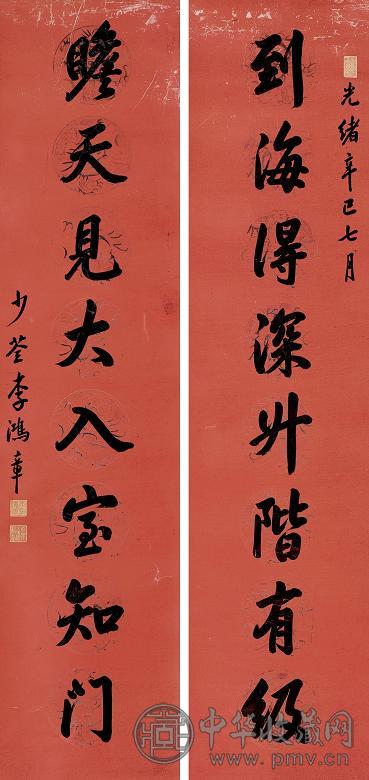 光緒辛巳七月
到海得深升階有級
瞻天見大入室知門
少荃李鴻章
中华收藏网
www.pmv.cn